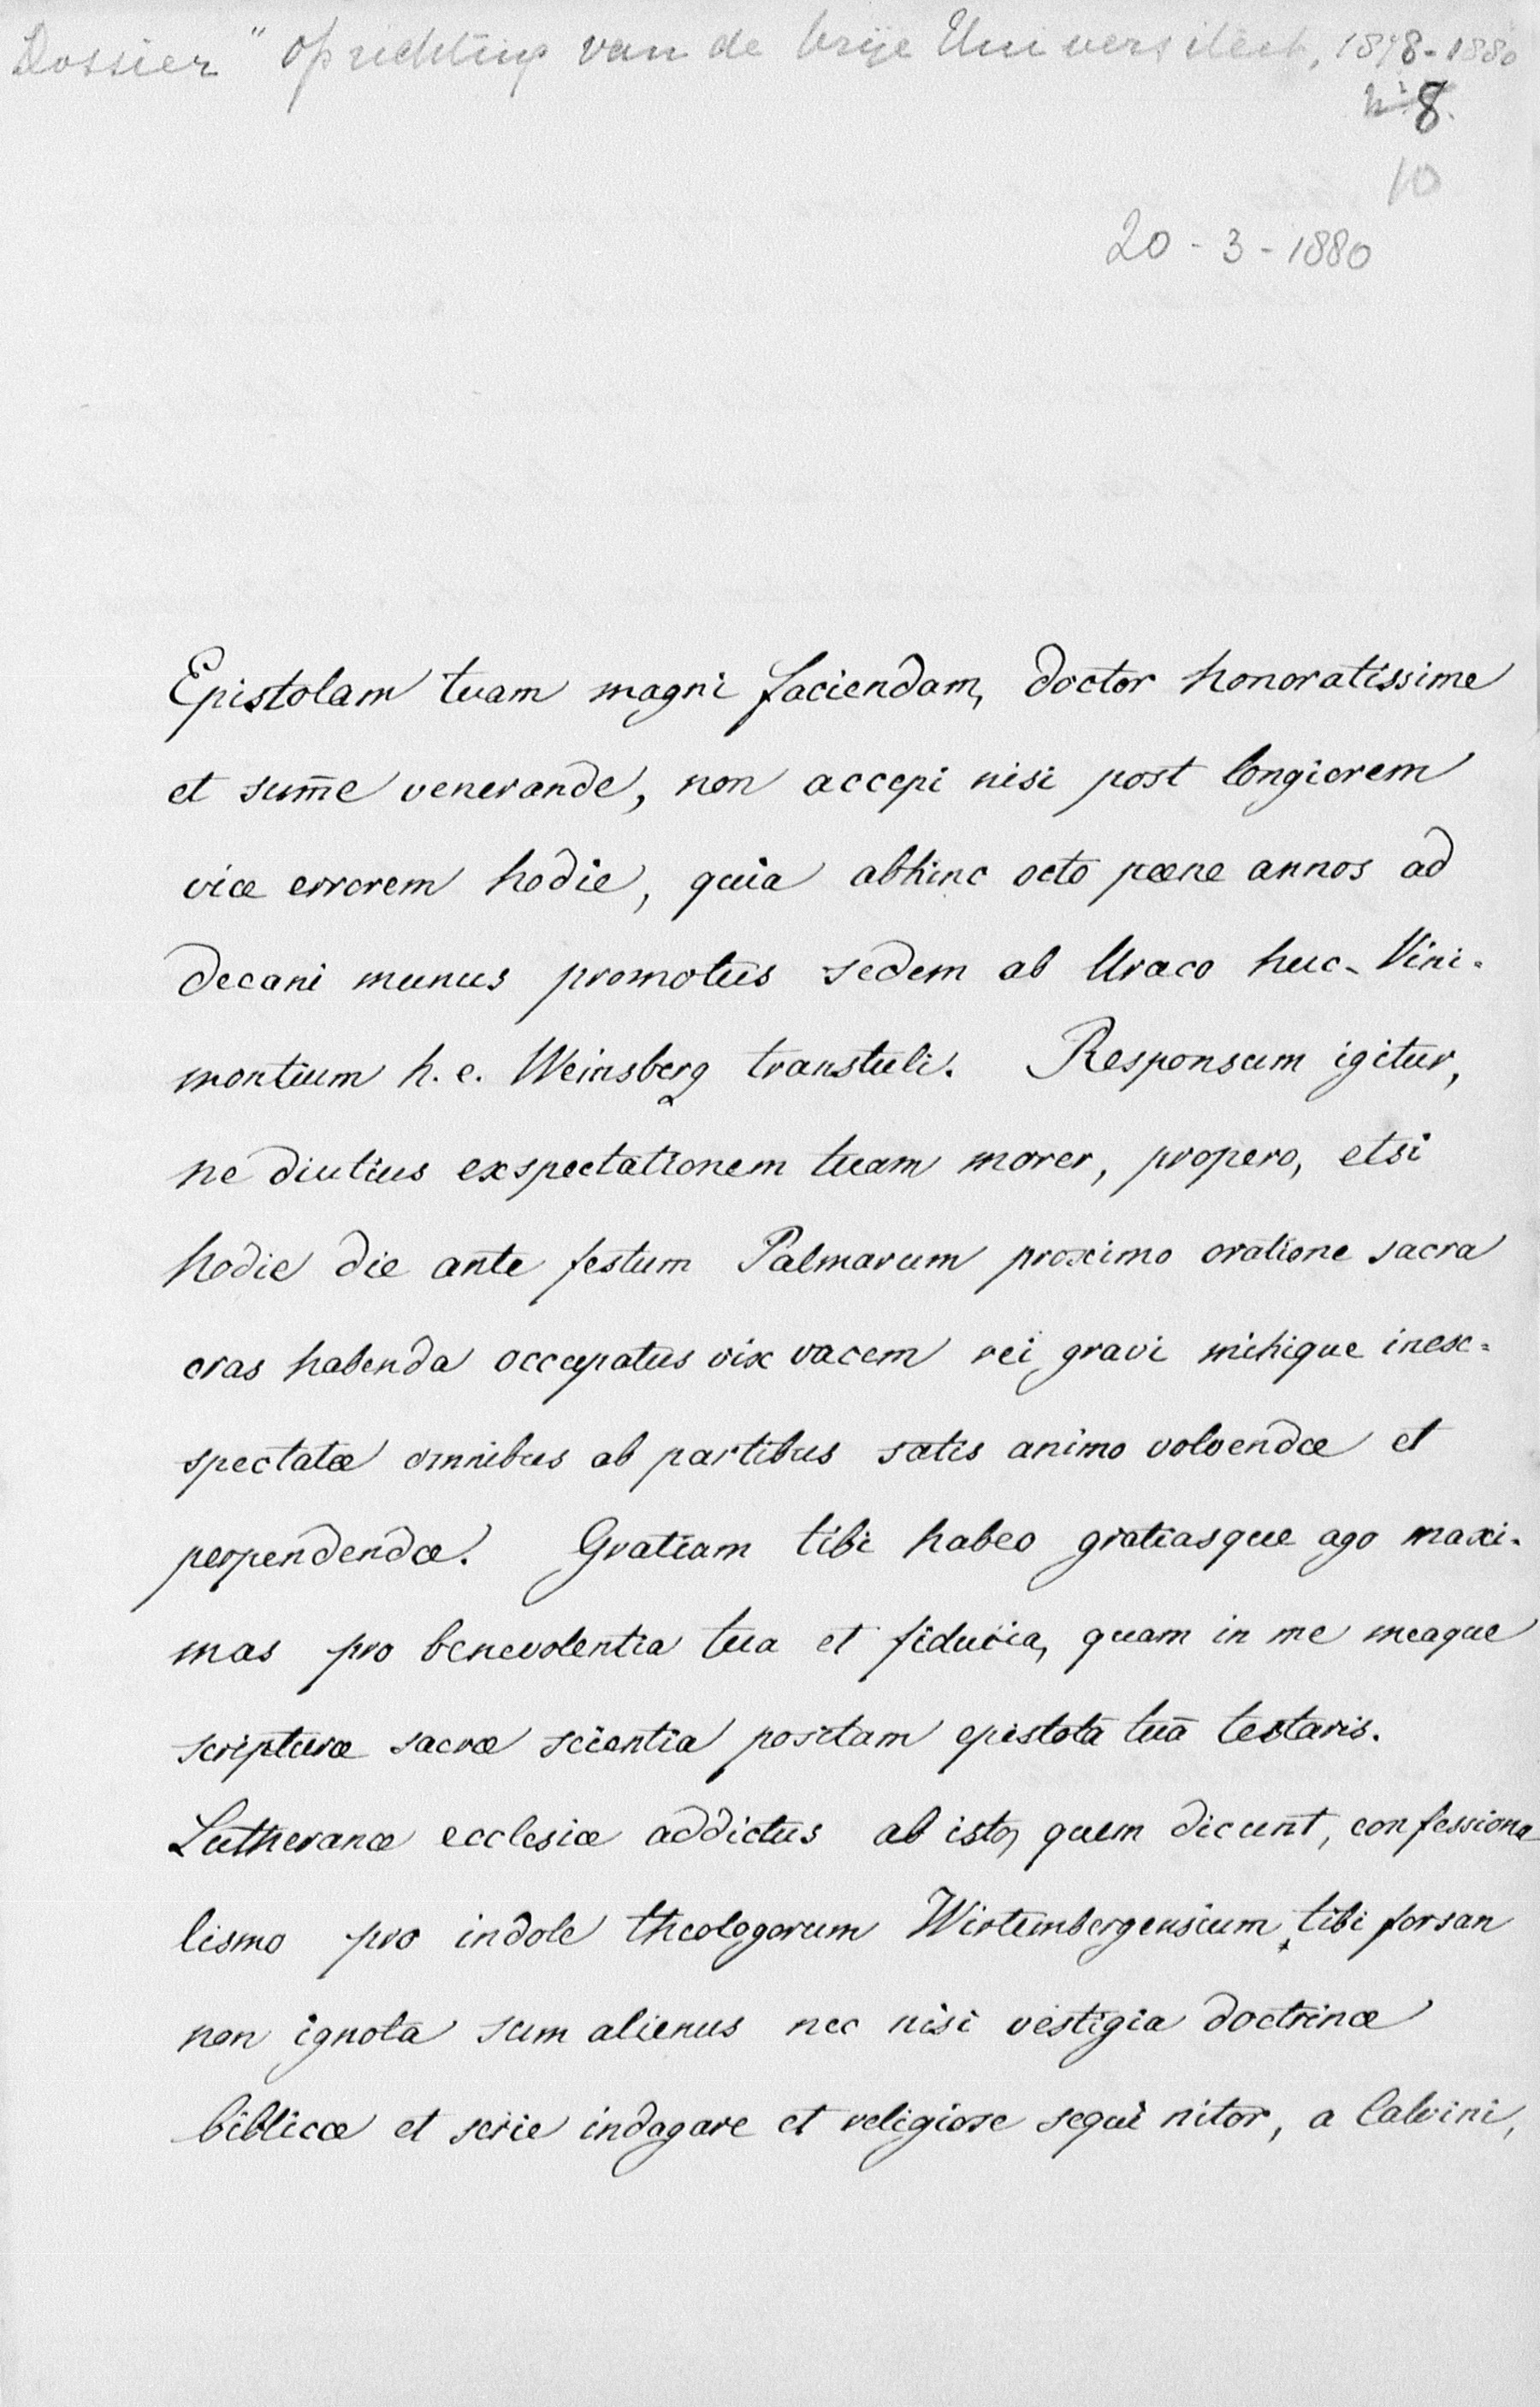 Dossier "Oprichting van de Vrije Universiteit, 1878-1880
No 8.
10
20-3-1880
Epistolam tuam magni faciendam, doctor honoratissime
et sum̄e venerande, non accepi nisi post longiorem
viæ errorem hodie, quia abhinc octo pæne annos ad
decani munus promotus sedem ab Uraco huc Vini-
montium h. e. Weinsberg transtuli. Responsum igitur,
ne diutius exspectationem tuam morer, propero, etsi
hodie die ante festum Palmarum proximo oratione sacra
cras habenda occupatus vix vacem rei gravi mihique inex-
spectatæ omnibus ab partibus satis animo volvendæ et
perpendendæ. Gratiam tibi habeo gratiasque ago maxi-
mas pro benevolentia tua et fiducia, quam in me meaque
scripturæ sacræ scientia positam epistolā tuā testaris.
Lutheranæ ecclesiæ addictus ab isto, quem dicunt, confessiona
lismo pro indole theologorum Wirtembergensium, tibi forsan
non ignota sum alienus nec nisi vestigia doctrinæ
biblicæ et serie indagare et religiose sequi nitor, a Calvini,